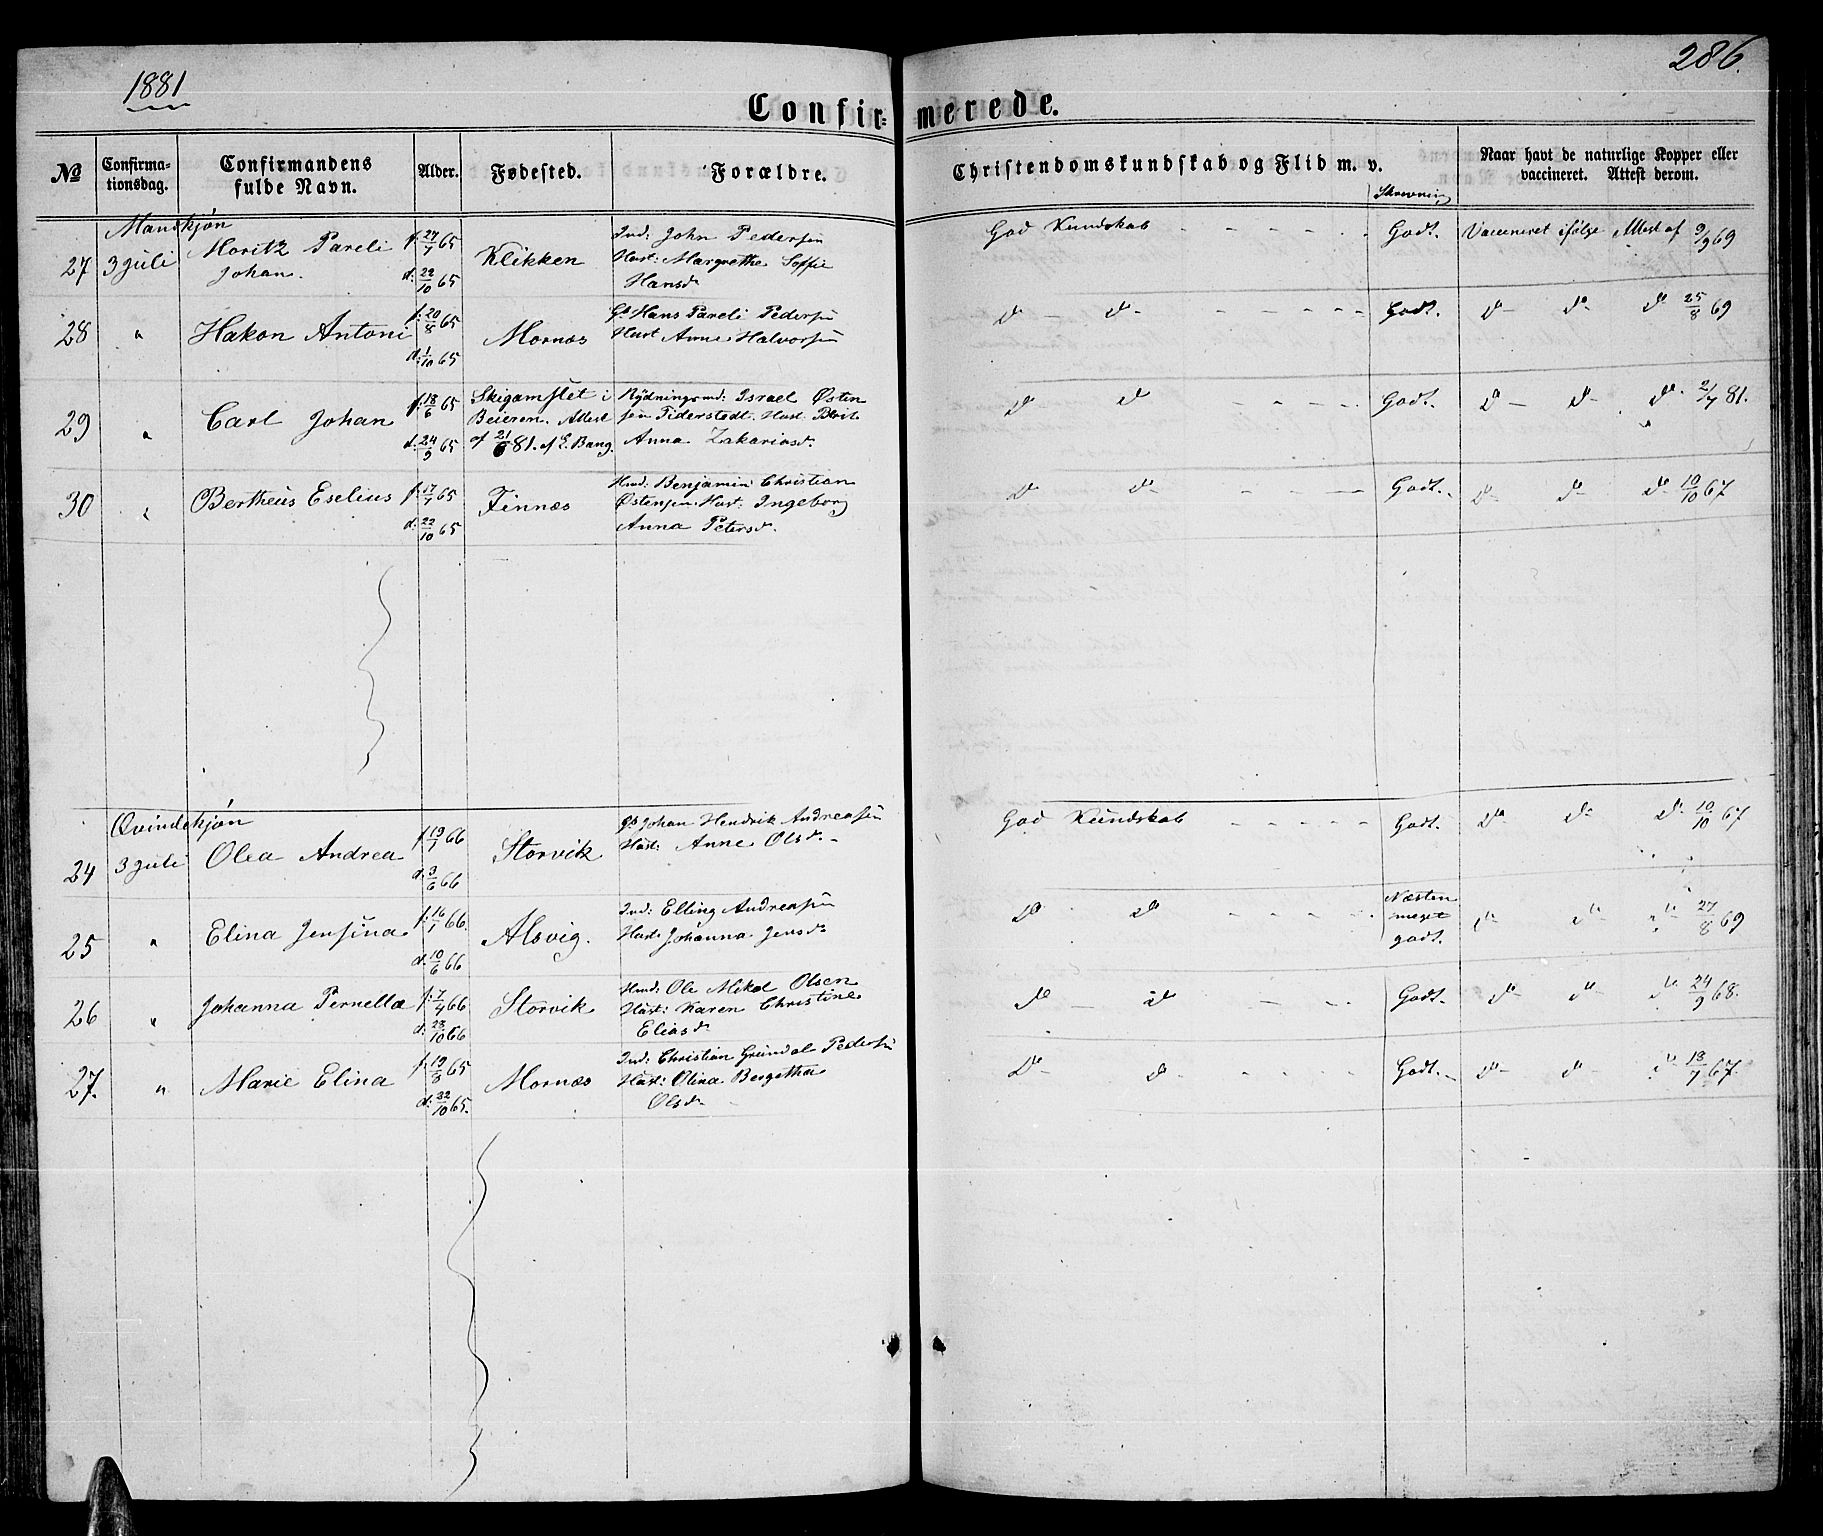 1881
286.
Confir=merede.
No Confirma-tionsdag. Confirmandens fulde Navn. Alder. Fødested. Forældre. Christendomskundskab og Flid m. v. Skrevning Naar havt de naturlige Kopper eller vaccineret. Attest derom.
Mandkjøn
27 3 Juli Moritz Pareli Johan. f. 27/7 65 d. 22/10 65 Klikken Ind: John Pedersen Hust: Margrethe Soffie Hansd. God Kundskab - - - - - Godt. Vaccineret ifølge Attest af 9/9 69
28 " Hakon Antoni f. 20/8 65 d. 1/10 65 Mornæs Gb. Hans Pareli Pedersen Hust Anne Halvorsen Do - Do - - - - - Godt. Do - Do Do 25/8 69
29 " Carl Johan f. 18/6 65 d. 24/9 65 Skigamslet i Beieren. Attest af 21/6 81. af E. Bang. Rydningsmd: Israel Østensen Tiderstedt. Hust. Anna Zakariasd. Do Do - - - - Godt. Do - Do - Do 2/7 81.
30 " Bertheus Eselius f. 17/7 65 d. 22/10 65 Finnæs Hmd: Benjamin Christian Østensen. Hust: Ingeborg Anna Petersd. Do Do - - - - Godt. Do - Do - Do 10/10 67
Qvindekjøn
24 3 Juli Olea Andrea f. 19/1 66 d. 3/6 66 Storvik Gb Johan Hendrik Andreasen Hust: Anne Olsd. God Kundskab - - - - - Godt. Do Do Do 10/10 67
25 " Elina Jensina f. 16/1 66. d. 10/6 66 Alsvig. Ind: Elling Andreasen Hust. Johanna Jensd. Do Do - - - - Næsten meget godt. Do Do Do 27/8 69
26 " Johanna Pernella f. 7/4 66 d. 28/10 66 Storvik Hmd: Ole Mikal Olsen Hust: Karen Christine Eliasd. Do - Do - - - Godt. Do Do Do 24/9 68.
27. " Marie Elina f. 19/8 65 d. 22/10 65. Mornæs Ind: Christian Grundal Pedersen Hust: Olina Bergitha Olsd. Do Do - - - - Godt. Do Do Do 18/7 67.